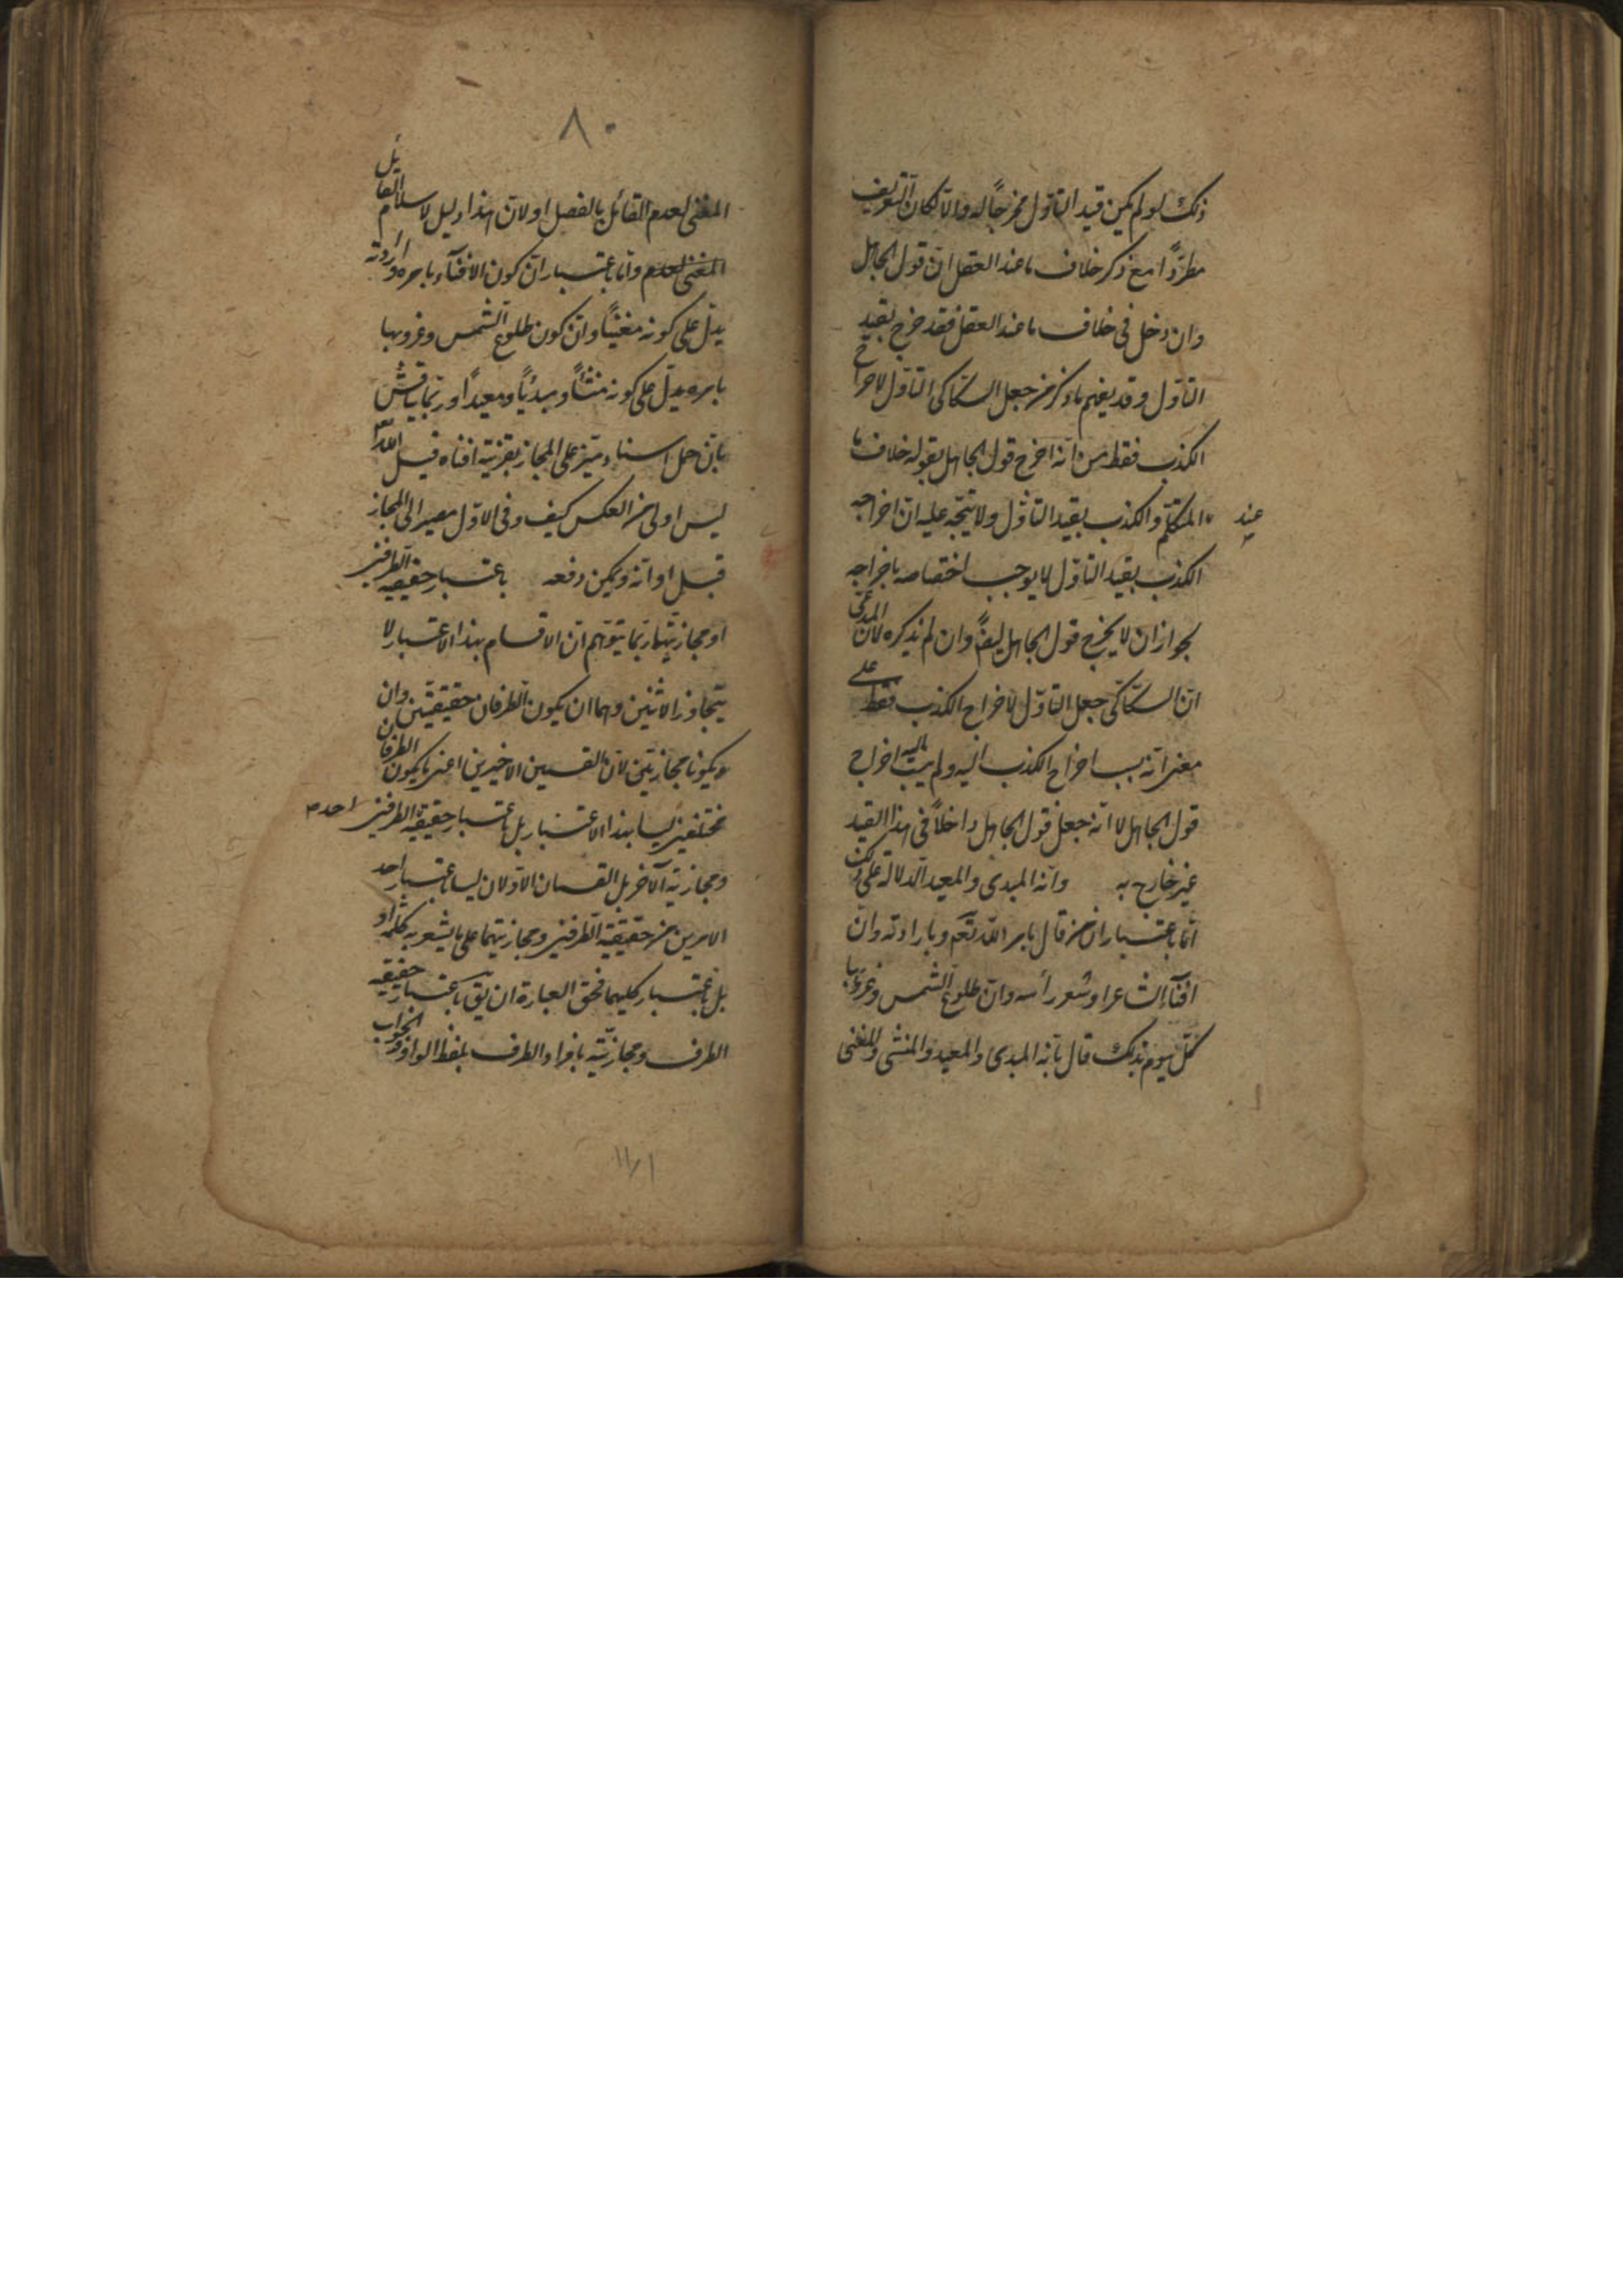 ذلك لو لم يكن قيد التاوّل مخرجًا له والا لكان التعريف
مطردًا مع ذكر خلاف ما عند العقل انّ قول الجاهل
وان دخل فى خلاف ما عند العقل فقد خرج بقيد
التاوّل وقد يفهم ما ذكر من جعل السكاكى التاوّل لاخراج
الكذب فقط من انه اخرج قول الجاهل بقوله خلاف ما
عند المتكلم والكذب بقيد التاوّل ولا يتجه عليه انّ اخراجه
الكذب بقيد التاوّل لا يوجب اختصاصه باخراجه
لجواز ان لا يخرج قول الجاهل ايضً وان لم يذكره لان المدعى
انّ السكاكى جعل التاوّل لاخراج الكذب فقط على
معنى انه نسب اخراج الكذب اليه ولم ينسب اليه اخراج
قول الجاهل لا انه جعل قول الجاهل داخلًا فى هذا القيد
غير خارج به وانه المبدى والمعيد الدلالة على ذلك
امّا باعتبار ان من قال بامر الله تعم وبارادته وان
افناء الشاعر او شعر رأسه وان طلوع الشمس وغروبها
كلّ يوم بذلك قال بانه المبدى والمعيد والمنشى والمفنى
٨٠
المفنى لعدم القائل بالفصل او لانّ هذا دليل لاسلام القائل
المفنى لعدم وامّا باعتبار انّ كون الافناء بامره وارادته
يدلّ على كونه مفنيًا وانّ كون طلوع الشمس وغروبها
بامره يدلّ على كونه منشئًا ومبدئًا ومعيدًا وربّما يناقش
بانّ حمل اسناد ميّز على المجاز بقرينة افناه قيل الله
ليس اولى من العكس كيف وفى الاوّل مصير الى المجاز
قبل اوانه ويمكن دفعه باعتبار حقيقة الطرفين
او مجازيتهما ربّما يتوهّم انّ الاقسام بهذا الاعتبار لا
يتجاوز الاثنين وهما ان يكون الطرفان حقيقتين وان
يكونا مجازيّين لانّ القسمين الاخيرين اعنى ما يكون الطرفان
مختلفين ليسا بهذا الاعتبار بل باعتبار حقيقة الطرفين احد
ومجازية الآخر بل القسمان الاوّلان ليسا باعتبار احد
الامرين من حقيقة الطرفين ومجازيتهما على ما يشعر به كلمة او
بل باعتبار كليهما فحق العبارة ان يق باعتبار حقيقة
الطرف ومجازيّته بافراد الطرف بلفظ الواو والجواب